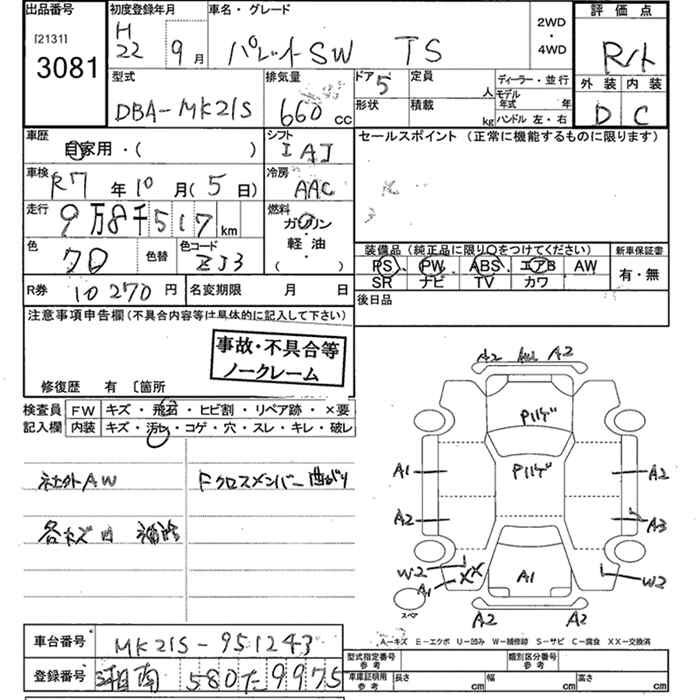 出品番号 初度登録年月 車名・グレード 評価点
[2131] H
3081 22 9月 パレットSW TS 2WD・4WD R/ト
型式 排気量 ドア 5 定員 人 ディーラー・並行 外装 内装
DBA-MK21S 660cc 形状 積載 kg モデル年式 年 ハンドル 左・右 D C
車歴 シフト セールスポイント (正常に機能するものに限ります)
自家用・( ) IAT
車検 R7年10月(5日) 冷房 AAC
走行 9万8千517km 燃料 ガソリン・軽油・( )
色 クロ 色替 色コード ZJ3
装備品 (純正品に限り○をつけてください) 新車保証書
PS PW ABS エアB AW 有・無
SR ナビ TV カワ
R券 10270円 名変期限 月 日 後日品
注意事項申告欄(不具合内容等は具体的に記入して下さい)
事故・不具合等
ノークレーム
修復歴 有 〔箇所
検査員 FW キズ・飛石・ヒビ割・リペア跡・×要
記入欄 内装 キズ・汚れ・コゲ・穴・スレ・キレ・破レ
社外AW Fクロスメンバー曲がり
各キズ凹
A2 A2
Pハゲ
A1 Pハゲ A2
A2 A3
W2 XX W2
A1 A1
スペ
A2 A2
A―キズ E―エクボ U―凹み W―補修跡 S―サビ C―腐食 XX―交換済
車台番号 MK21S-951243
登録番号 580た9975
型式指定番号 参考 類別区分番号 参考
車庫証明用 参考 長さ cm 幅 cm 高さ cm